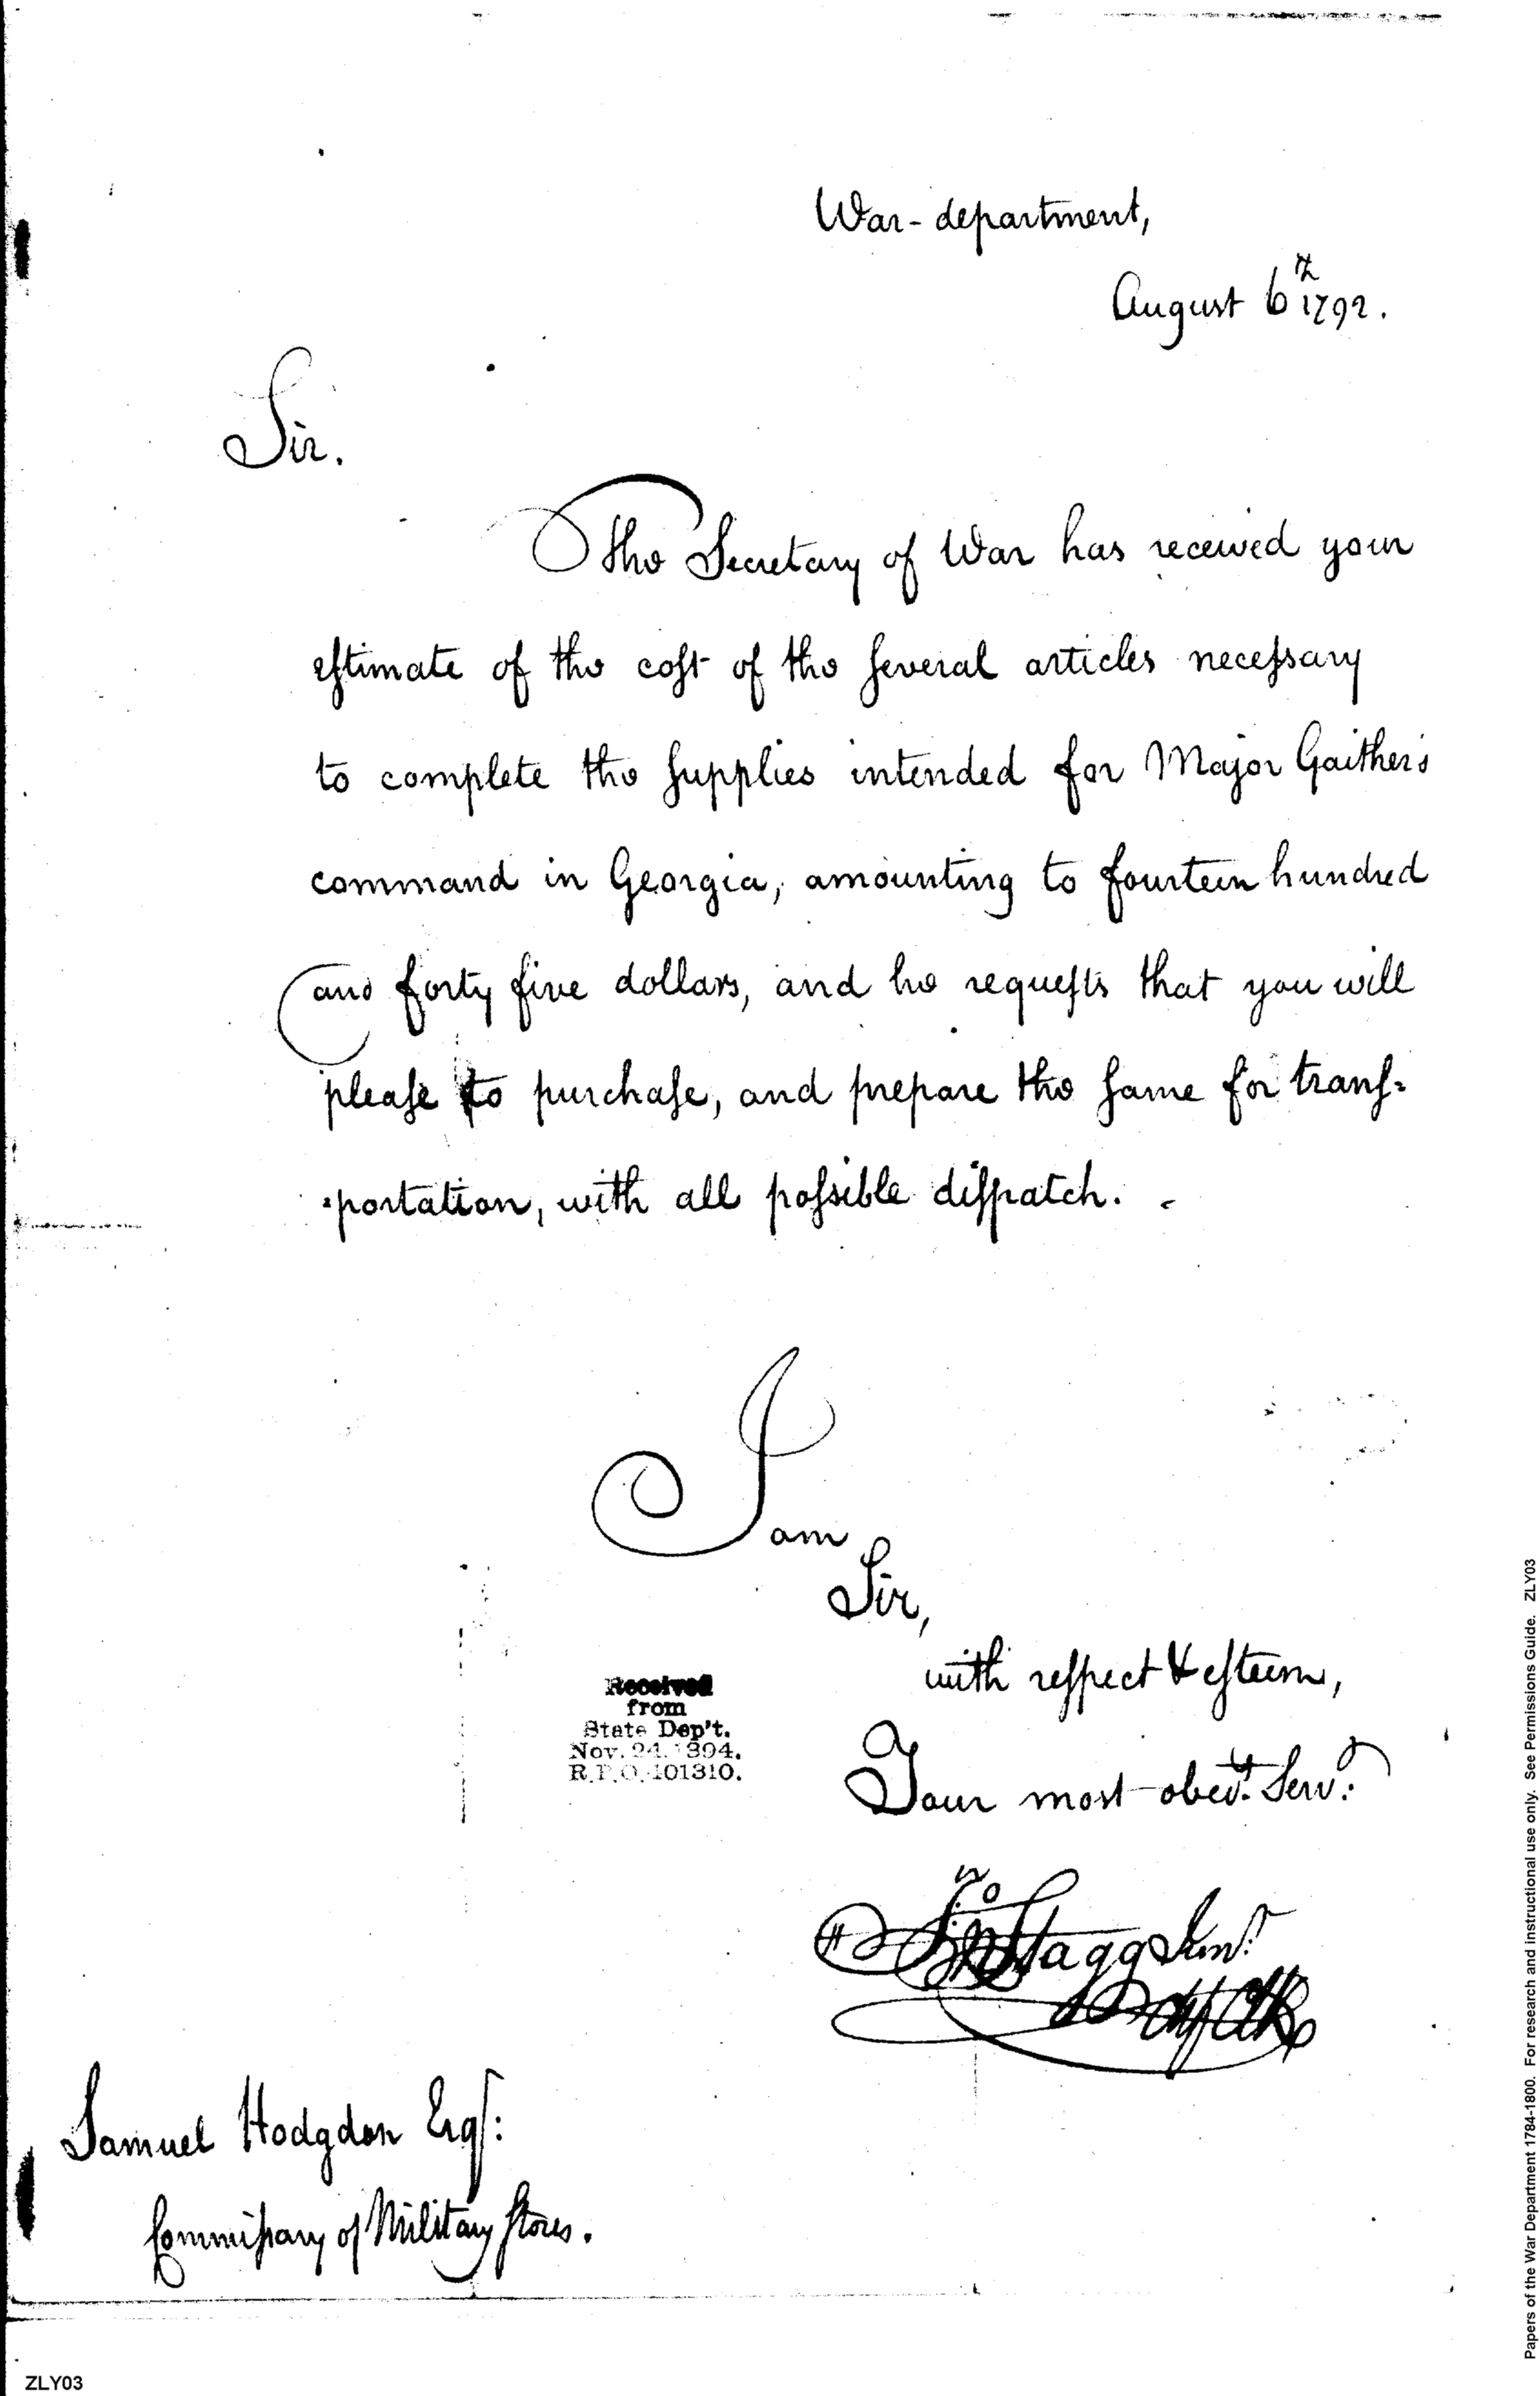 War-department,
August 6th 1792.
Sir.
The Secretary of War has received your
estimate of the cost of the several articles necessary
to complete the supplies intended for Major Gaither's
command in Georgia, amounting to fourteen hundred
and forty five dollars, and he requests that you will
please to purchase, and prepare the same for trans=
=portation, with all possible dispatch.
I am
Sir,
with respect & esteem,
Your most obedt. Servt.
Jno Stagg Junr.
Received
from
State Dep't.
Nov. 24. 1894.
R.P.O. 401310.
Samuel Hodgdon Esqr:
Commissary of Military stores.
ZLY03
Papers of the War Department 1784-1800. For research and instructional use only. See Permissions Guide. ZLY03